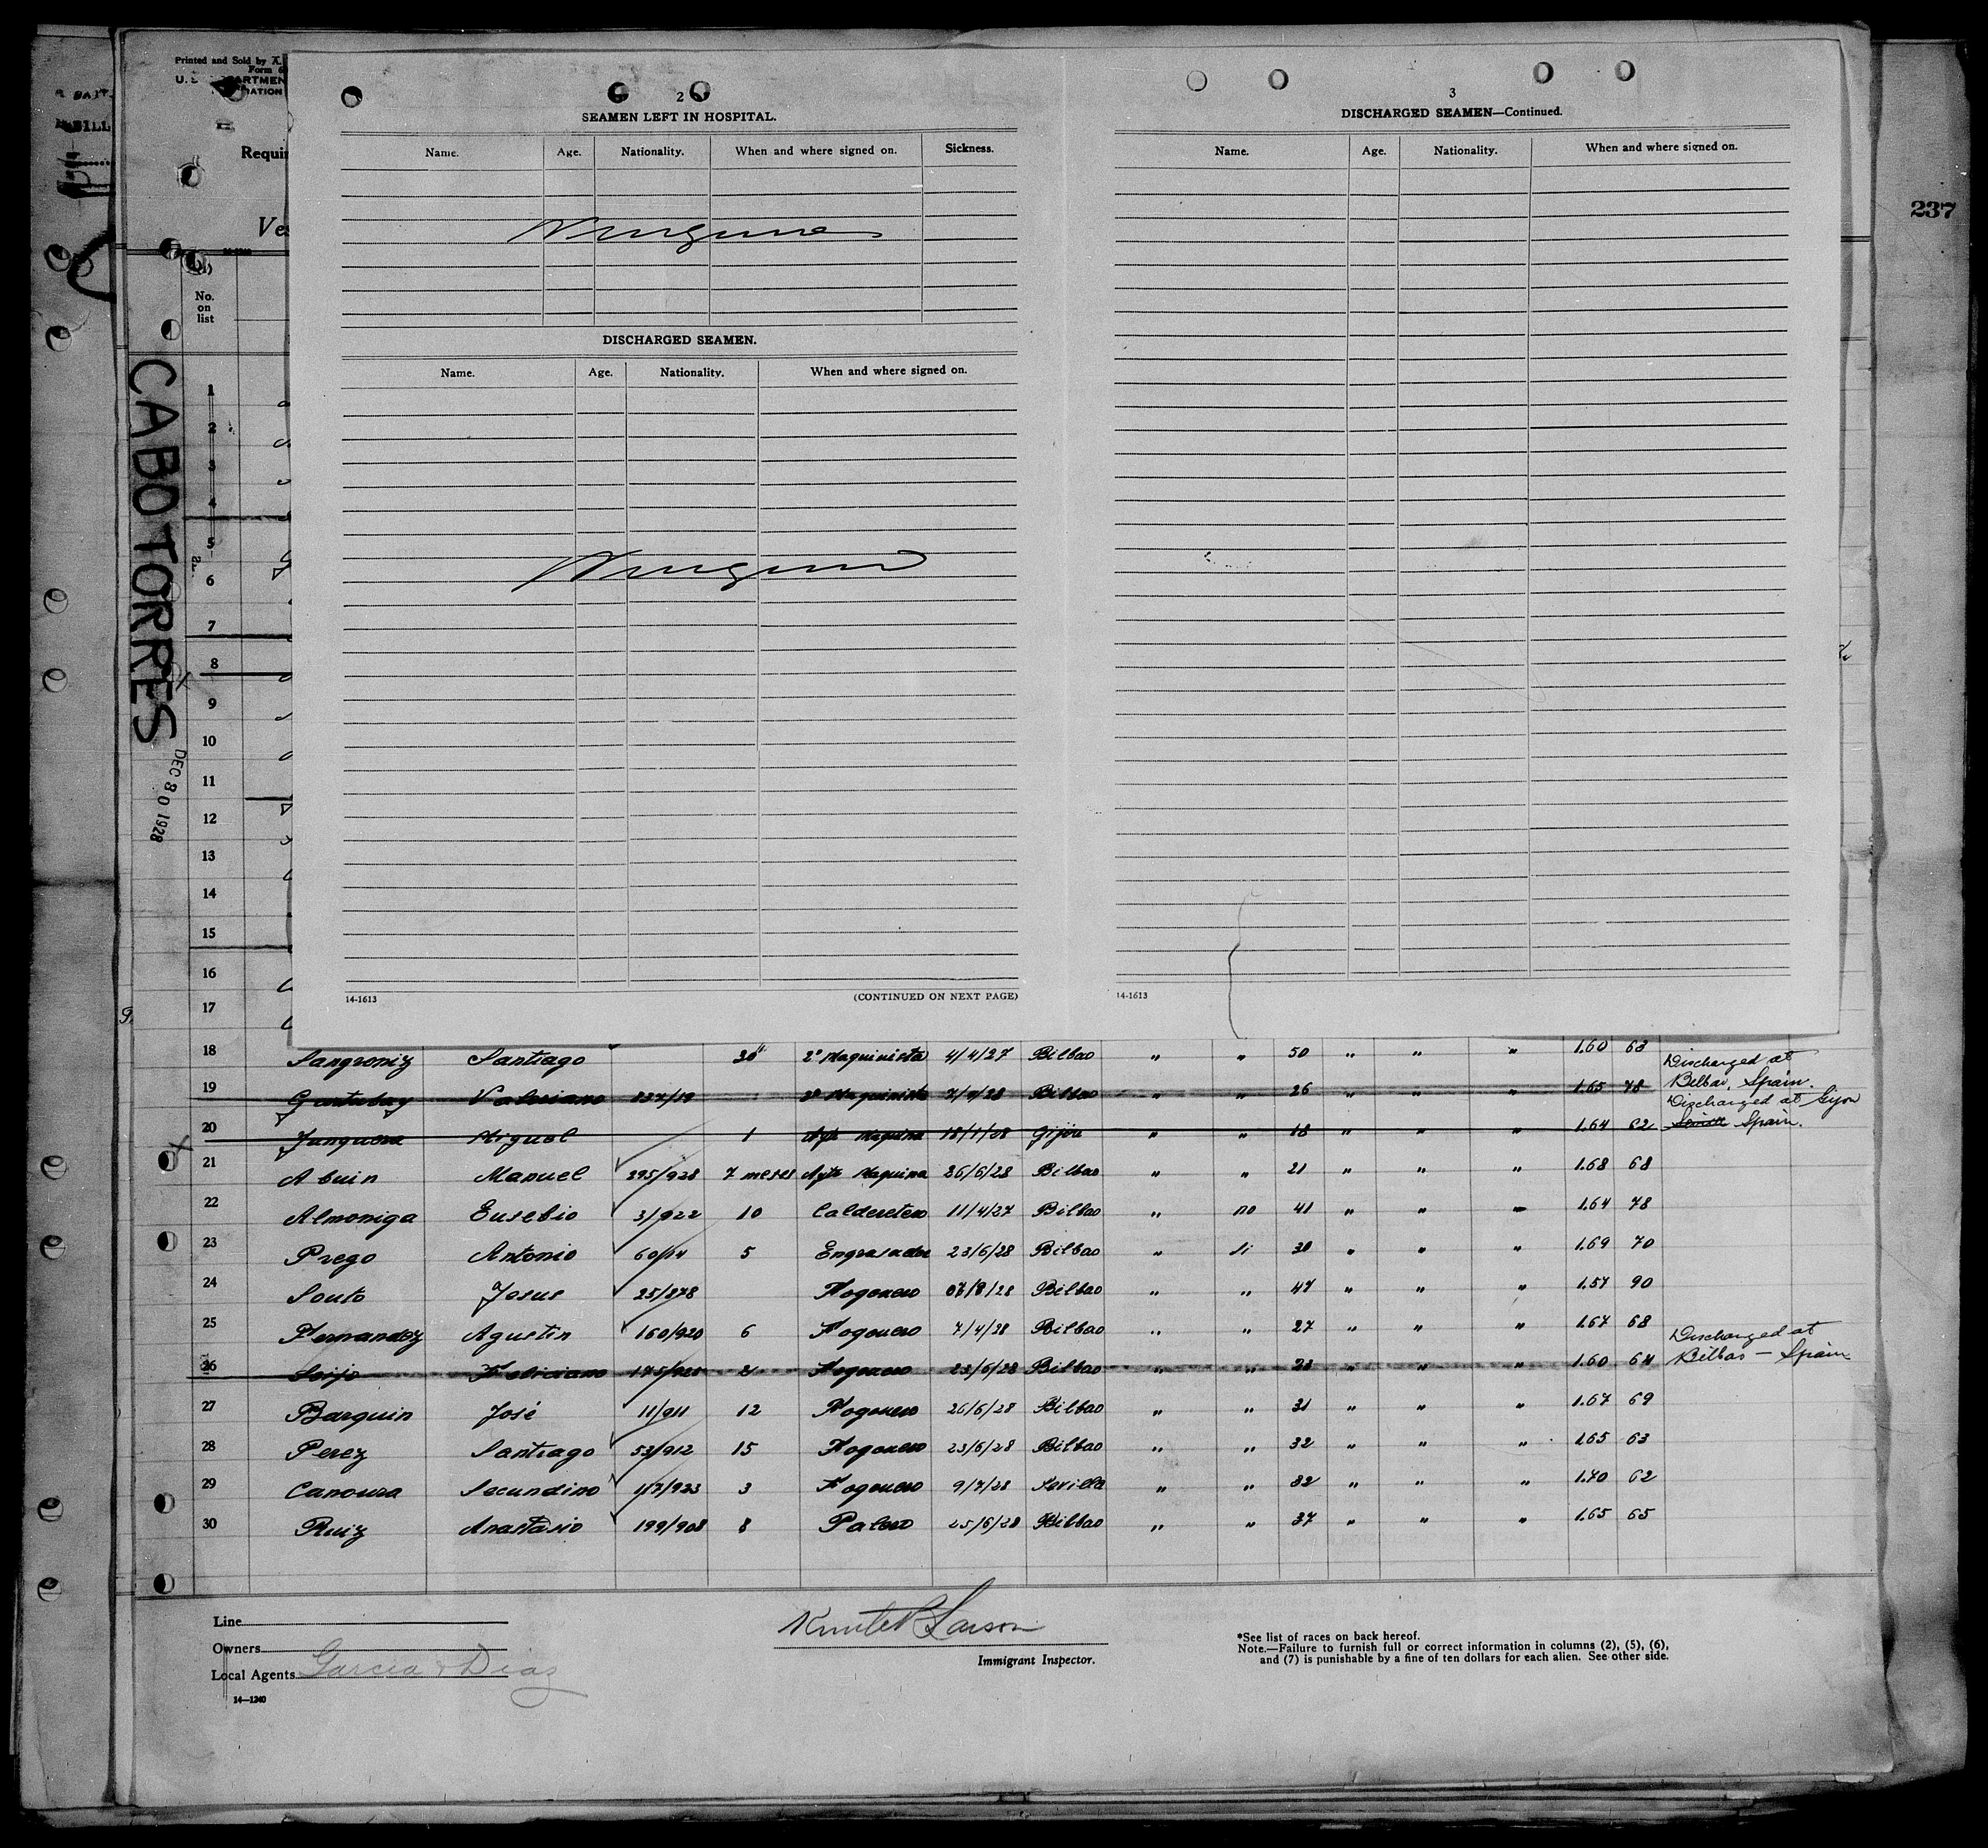 237
Printed and Sold by A.
Form
U.
Requir
Ves
No.
on
list
CABO TORRES
DEC 30 1928
2
SEAMEN LEFT IN HOSPITAL.
Name. Age. Nationality. When and where signed on. Sickness.
Ninguno
DISCHARGED SEAMEN.
Name. Age. Nationality. When and where signed on.
Ninguno
14-1613 (CONTINUED ON NEXT PAGE)
3
DISCHARGED SEAMEN—Continued.
Name. Age. Nationality. When and where signed on.
14-1613
1
2
3
4
5
6
7
8
9
10
11
12
13
14
15
16
17
18 Sangroniz Santiago 30" 2º Maquinista 4/4/27 Bilbao " " 50 " " " 1.60 63
Discharged at
19 Valeriano 3º Maquinista 7/4/28 Bilbao " " 26 " " " 1.65 78 Bilbao, Spain.
Discharged at Gijon
20 Junquera Miguel 1 Ayte Maquina 18/1/28 Gijón " " 18 " " " 1.64 62 Spain.
21 Abuin Manuel 295/928 7 meses Ayte Maquina 26/6/28 Bilbao " " 21 " " " 1.68 68
22 Almoniga Eusebio 31/922 10 Calderetero 11/4/27 Bilbao " no 41 " " " 1.64 78
23 Prego Antonio 60/14 5 Engrasador 23/6/28 Bilbao " si 30 " " " 1.69 70
24 Souto Jesus 25/878 Fogonero Bilbao " " 47 " " " 1.57 90
25 Fernandez Agustin 160/920 6 Fogonero 7/4/28 Bilbao " " 27 " " " 1.67 68
Discharged at
26 Seijo Feliciano 175/928 2 Fogonero 23/6/28 Bilbao " " 23 " " " 1.60 64 Bilbao — Spain
27 Barquin José 11/911 12 Fogonero 26/6/28 Bilbao " " 31 " " " 1.67 69
28 Perez Santiago 53/912 15 Fogonero 23/6/28 Bilbao " " 32 " " " 1.65 63
29 Canoura Secundino 3 Fogonero 9/7/28 Sevilla " " 32 " " " 1.70 62
30 Ruiz Anastasio 199/908 8 Palero 25/6/28 Bilbao " " 37 " " " 1.65 65
Line
Owners
Local Agents Garcia & Diaz
14—1240
Larson
Immigrant Inspector.
*See list of races on back hereof.
Note.—Failure to furnish full or correct information in columns (2), (5), (6),
and (7) is punishable by a fine of ten dollars for each alien. See other side.